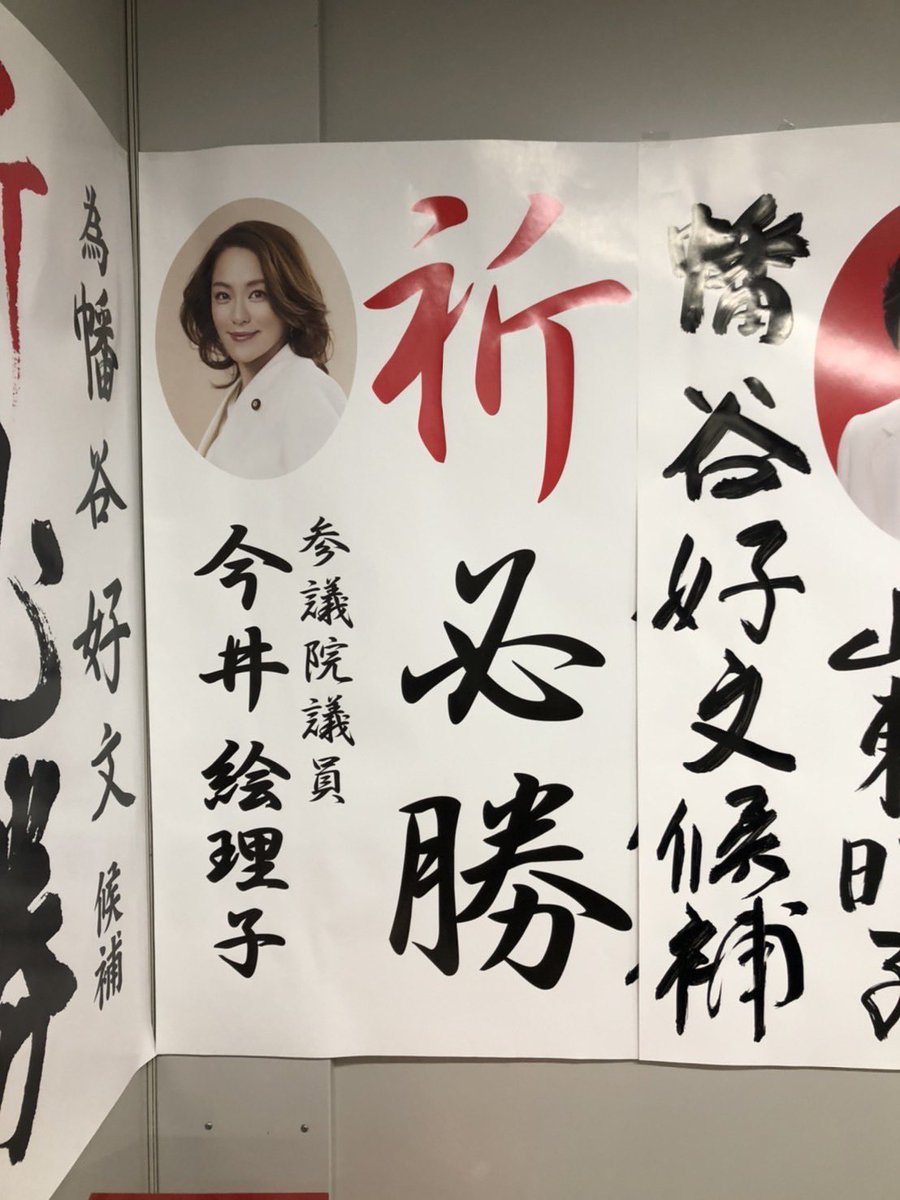 山東昭子
幡谷好文候補
祈必勝
参議院議員
今井絵理子
為幡谷好文候補